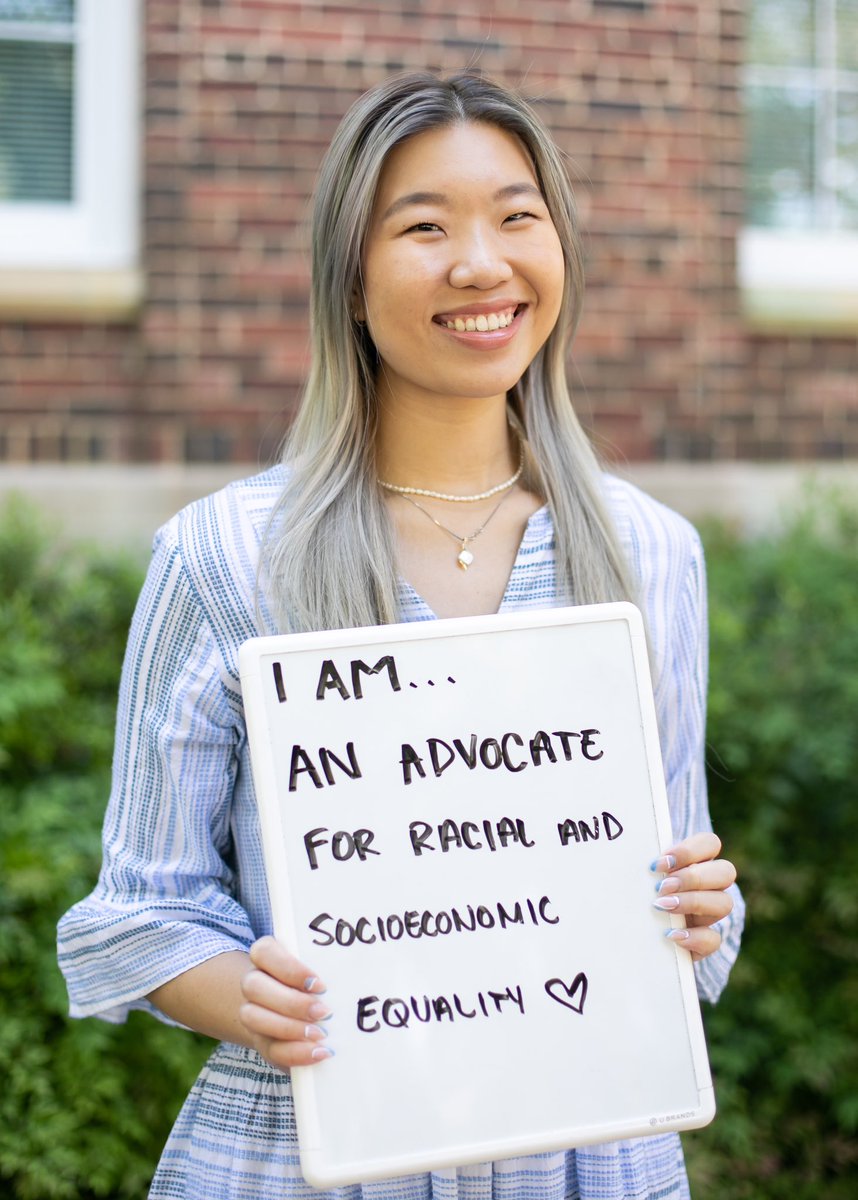 I AM...
AN ADVOCATE
FOR RACIAL AND
SOCIOECONOMIC
EQUALITY ♡
U BRANDS